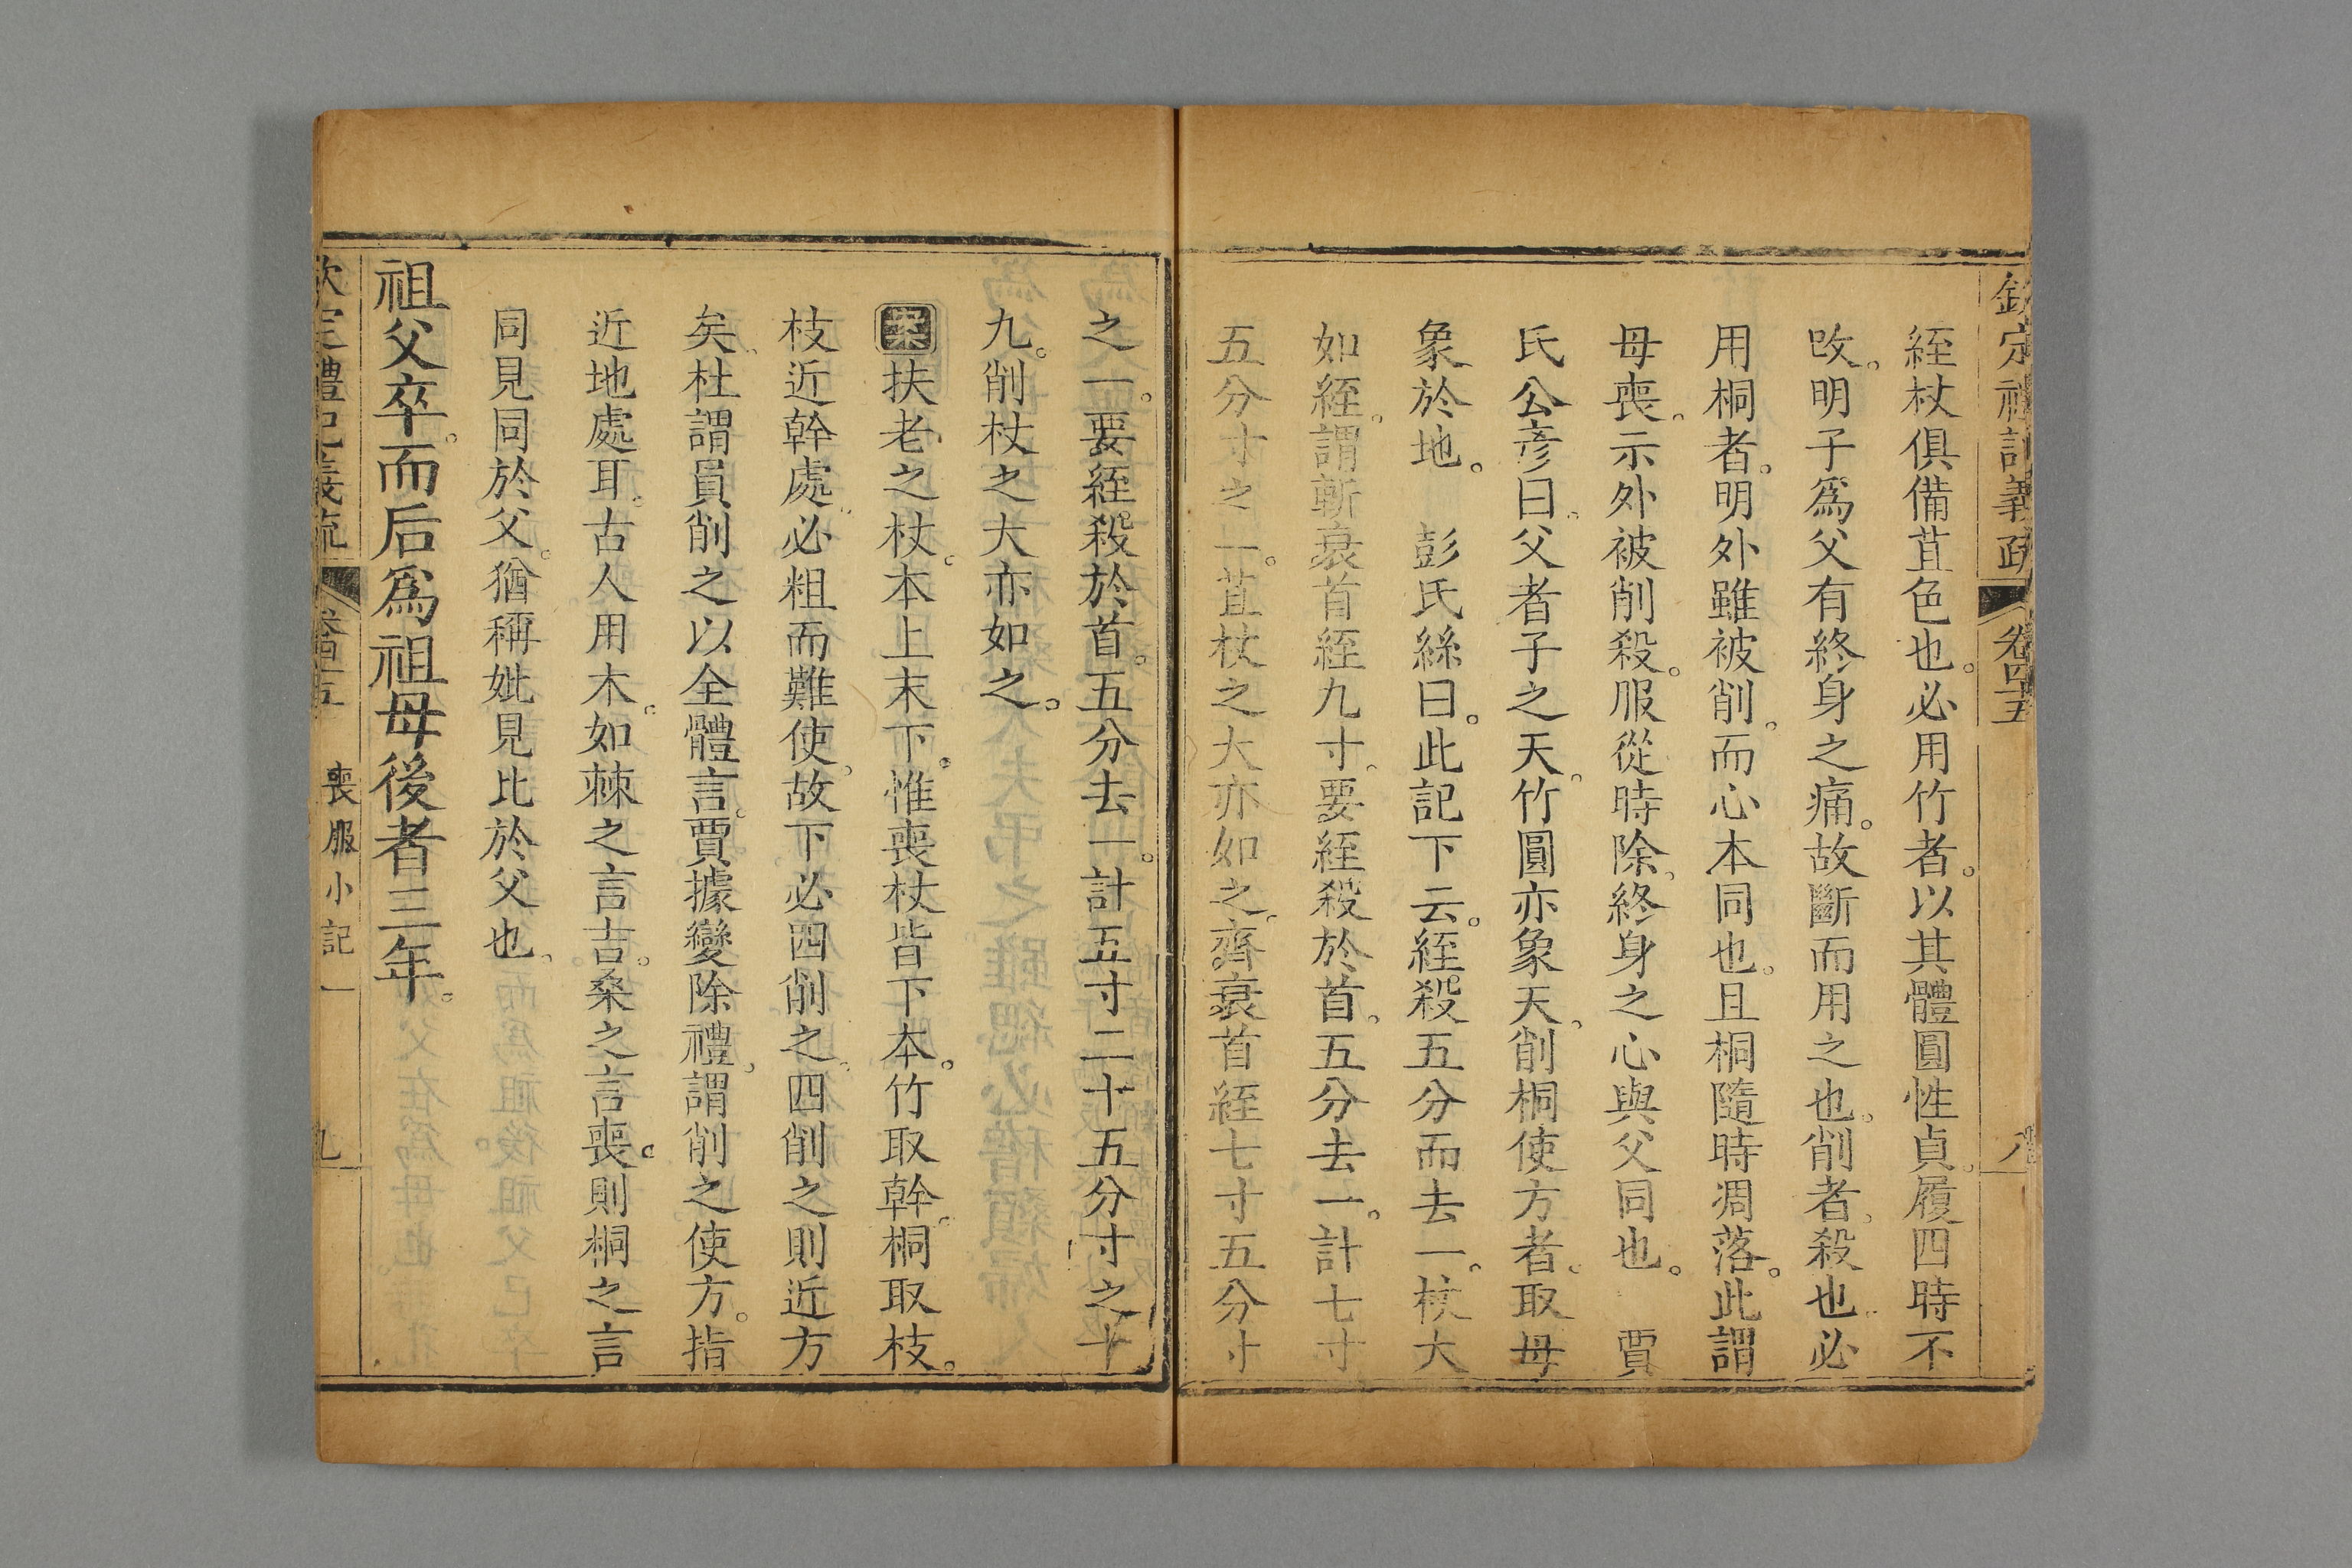 欽定禮記義疏 卷四十五 八
絰杖俱備苴色也。必用竹者。以其體圓性貞。履四時不
改。明子爲父有終身之痛。故斷而用之也。削者、殺也。必
用桐者。明外雖被削。而心本同也。且桐隨時凋落。此謂
母喪。示外被削殺。服從時除、終身之心與父同也。 賈
氏公彦曰。父者子之天。竹圓亦象天、削桐使方者、取母
象於地。 彭氏絲曰。此記下云。絰殺五分而去一。杖大
如絰。謂斬衰首絰九寸。要絰殺於首。五分去一。計七寸
五分寸之一。苴杖之大亦如之。齊衰首絰七寸五分寸
之一。要絰殺於首。五分去一。計五寸二十五分寸之十
九。削杖之大亦如之。
案扶老之杖。本上末下。惟喪杖皆下本。竹取幹。桐取枝。
枝近幹處、必粗而難使。故下必四削之、四削之則近方
矣、杜謂員削之以全體言。賈據變除禮、謂削之使方。指
近地處耳。古人用木。如棘之言吉。桑之言喪。則桐之言
同見同於父。猶稱妣見比於父也、
祖父卒。而后爲祖母後者三年。
欽定禮記義疏 卷四十五 喪服小記一 九